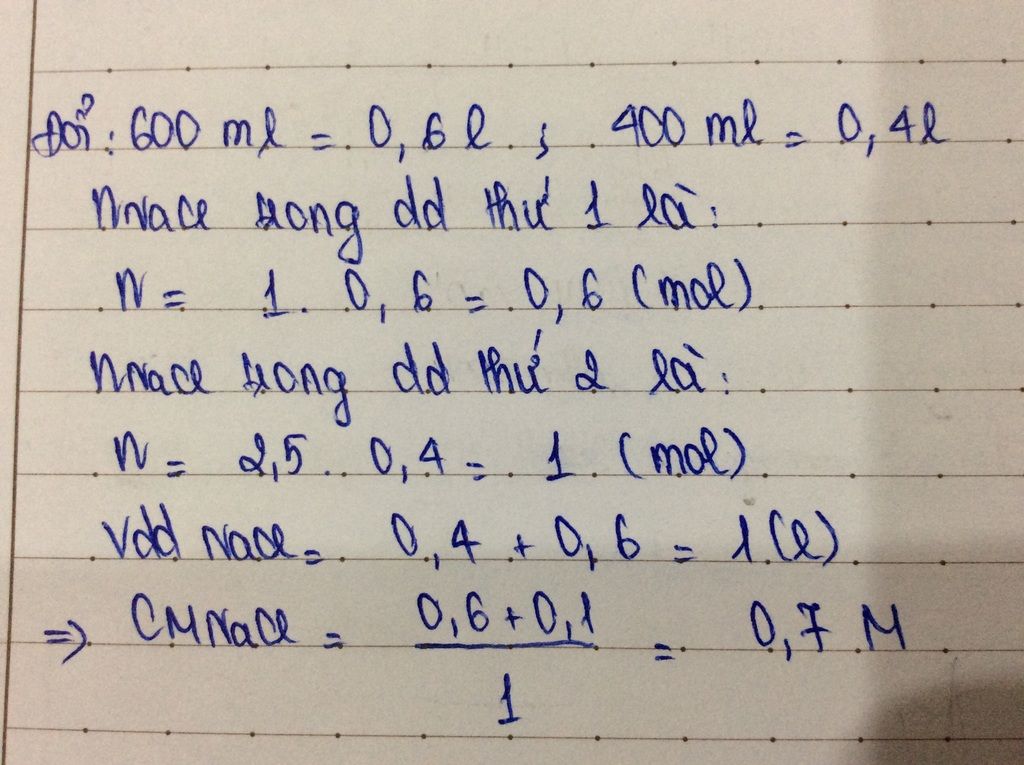 Đổi: 600 ml = 0,6 l ; 400 ml = 0,4l
nNaCl trong dd thứ 1 là:
n = 1. 0,6 = 0,6 (mol)
nNaCl trong dd thứ 2 là:
n = 2,5. 0,4 = 1 (mol)
Vdd NaCl = 0,4 + 0,6 = 1(l)
=> CMNaCl = (0,6+0,1)/1 = 0,7 M